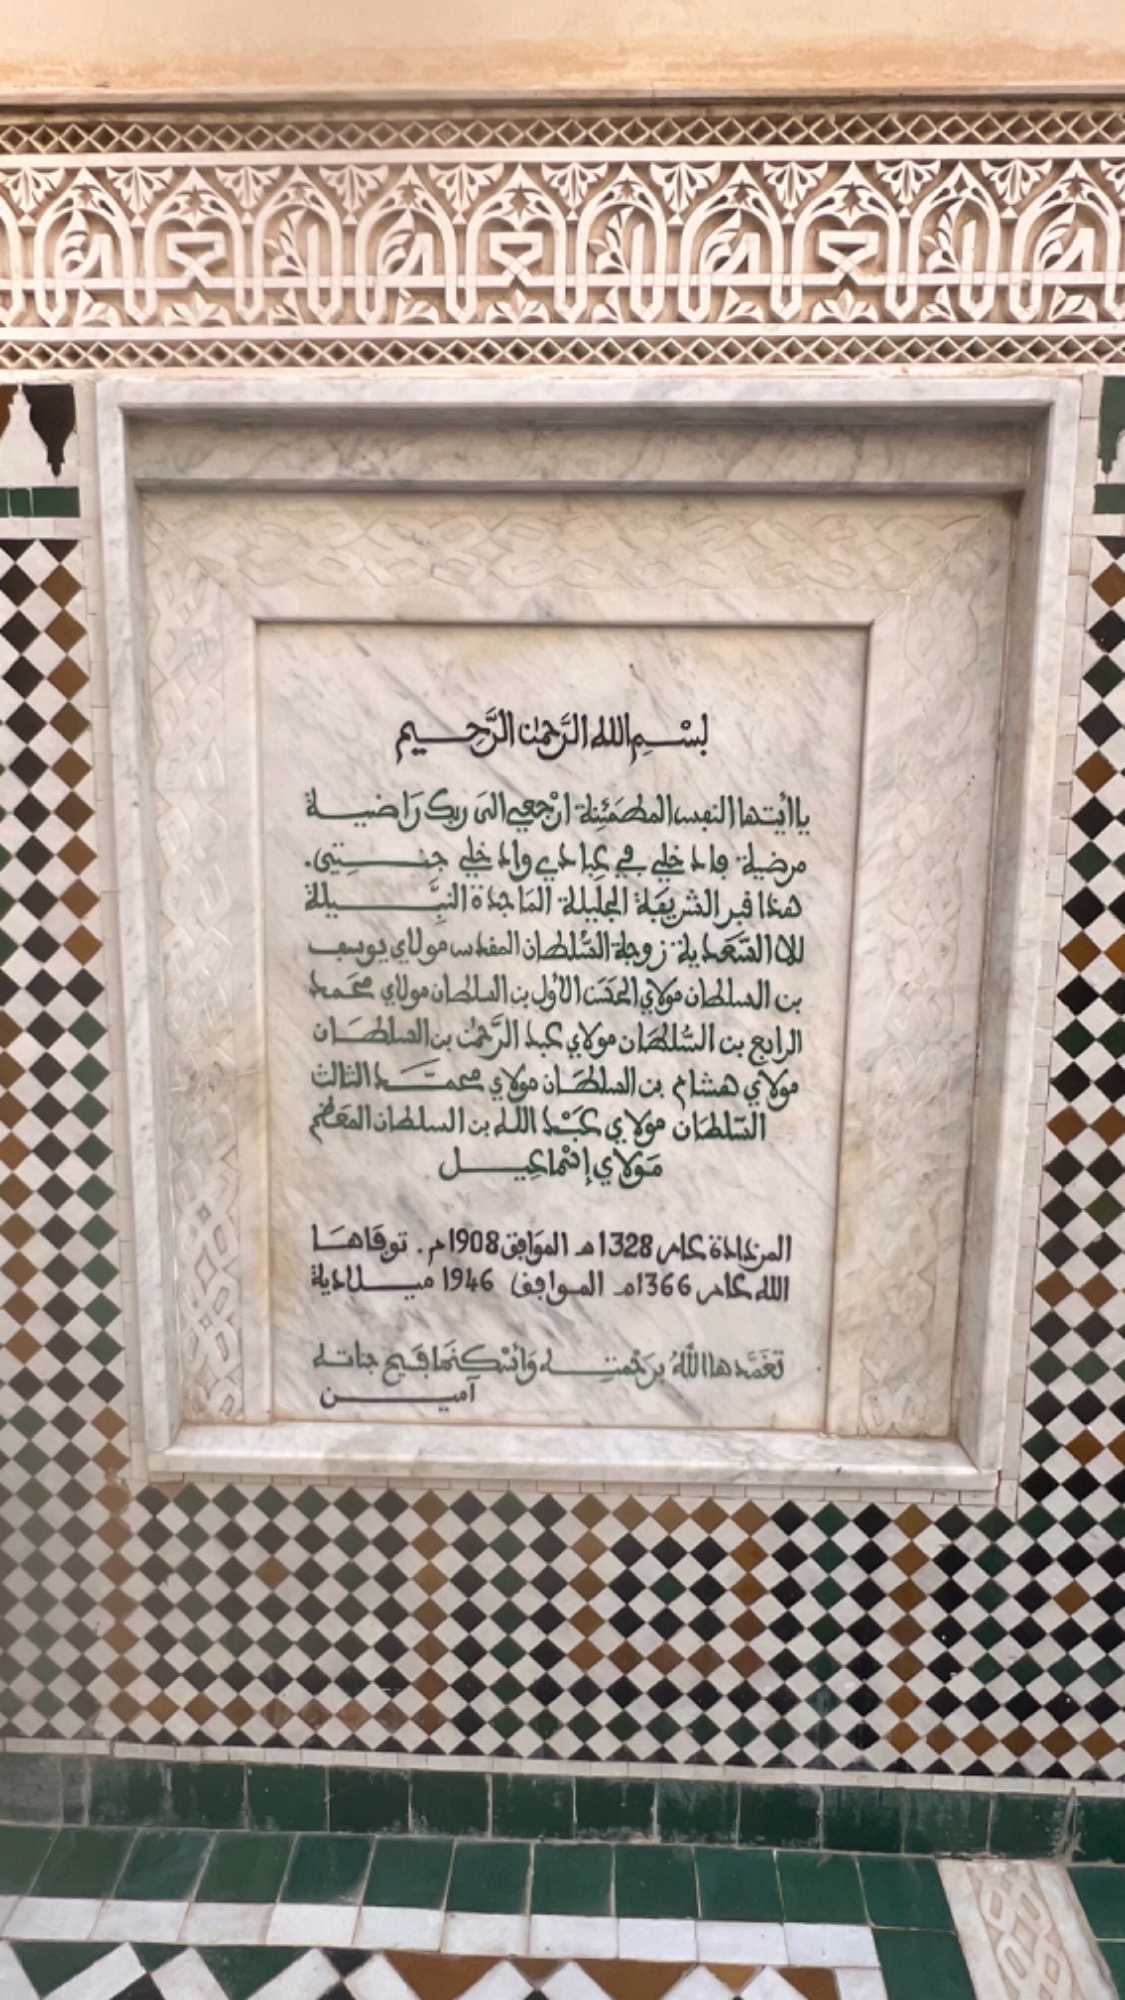 بِسْمِ اللهِ الرَّحْمٰنِ الرَّحِيمِ
ياأيتها النفس المطمَئِنة ارْجعي الى ربك رَاضية
مرضية فادخلي في عِبادي وادخلي جنتي.
هذا قبر الشريفَة الجليلة المَاجدة النَّبِيلة
للا السَّعدية زوجة السُّلطان المقدس مولاي يوسف
بن السلطان مولاي الحسَن الأول بن السلطان مولاي محَمد
الرابع بن السُّلطَان مولاي عبد الرَّحمٰن بن السلطان
مولاي هشام بن السلطَان مولاي محمَّد الثالث
السّلطَان مولاي عَبْد الله بن السلطان المعَظم
مَولاي إسْماعِيل
المزدادة عام 1328هـ الموَافق 1908م. توفَاهَا
الله عام 1366هـ الموافق 1946 ميلادية
تغَمَّدها اللَّهُ برَحْمتِه وَأسْكنَها فَسِيح جناته
آمين